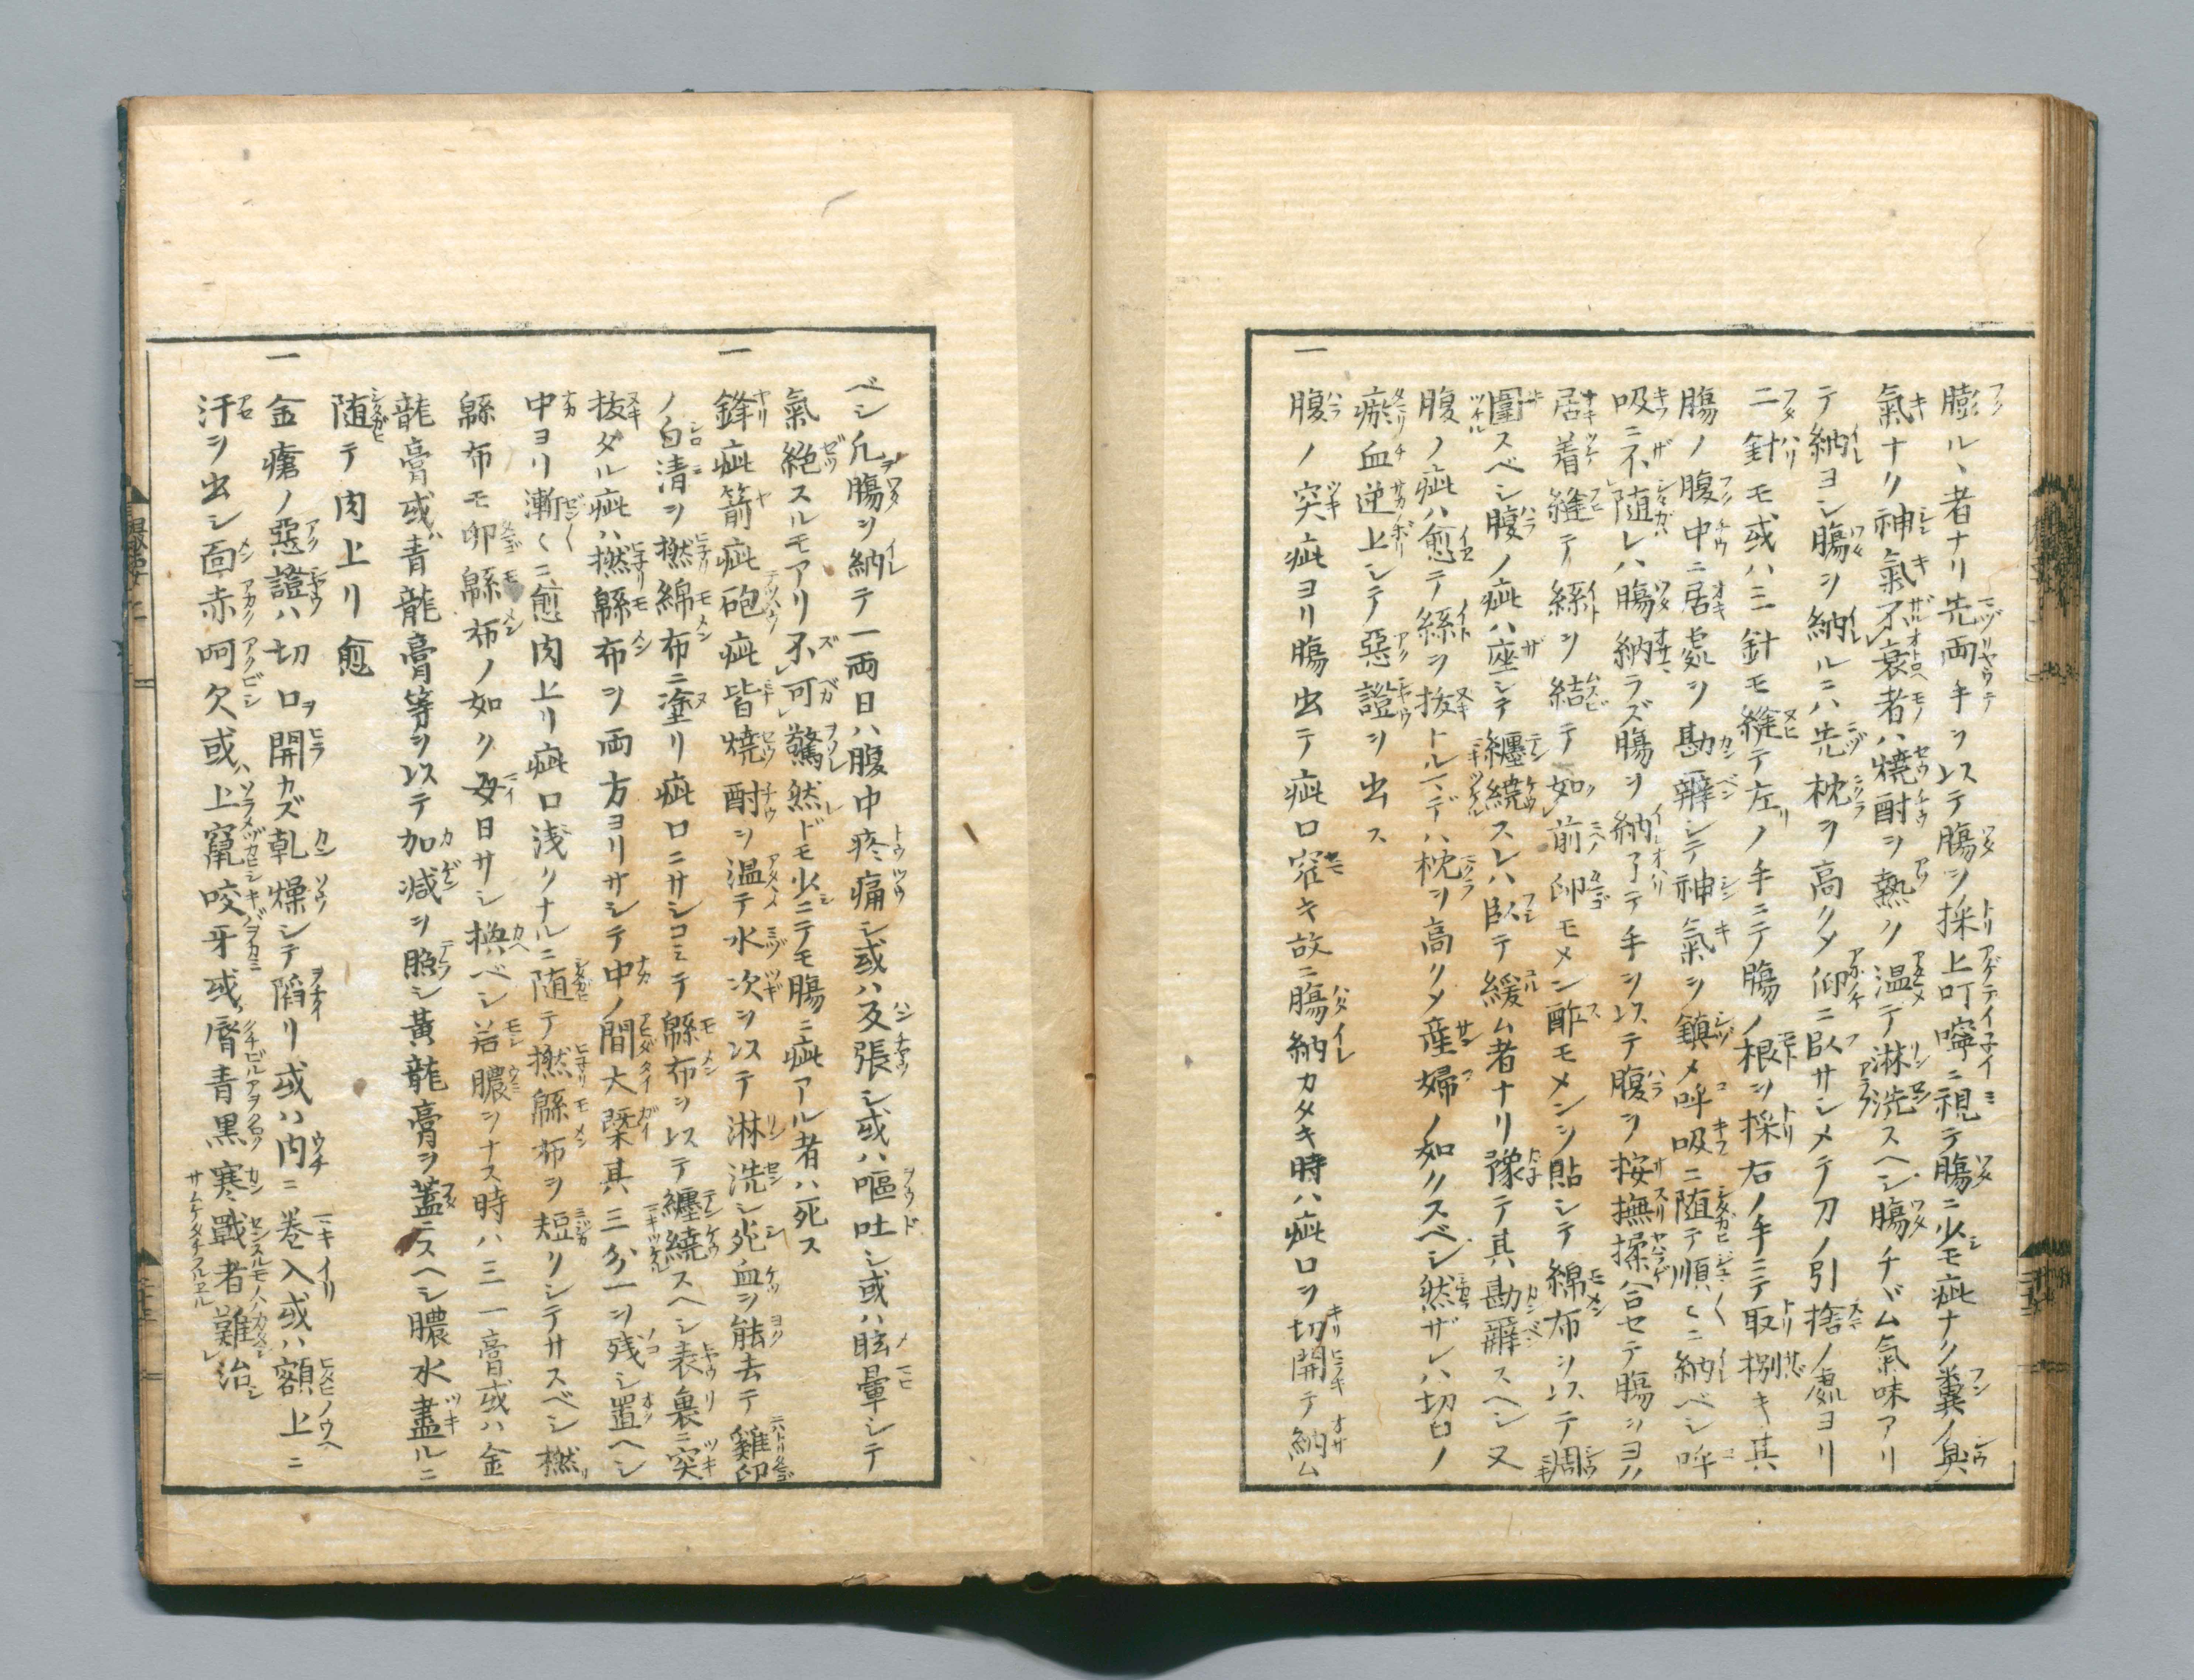 膨ル丶者ナリ先両手ヲ以テ膓ヲ採上叮嚀ニ視テ膓ニ少モ疵ナク糞ノ臭
氣ナク神氣不衰者ハ焼酎ヲ熱ク温テ淋洗スヘシ膓チヾム氣味アリ
テ納ヨシ膓ヲ納ルニハ先枕ヲ高クメ仰ニ臥サシメテ刀ノ引捨ノ処ヨリ
二針モ或ハ三針モ縫テ左ノ手ニテ膓ノ根ヲ採右ノ手ニテ取捌キ其
膓ノ腹中ニ居処ヲ勘辨シテ神氣ヲ鎮メ呼吸ニ随テ順〻ニ納ベシ呼
吸ニ不随レハ膓納ラズ膓ヲ納了テ手ヲ以テ腹ヲ按撫揉合セテ膓ヲヨク
居着縫テ絲ヲ結テ如前卵モメン酢モメンヲ貼シテ綿布ヲ以テ周
圍スベシ腹ノ疵ハ座シテ纏繞スレハ臥テ緩ム者ナリ豫テ其勘辨スヘシ又
腹ノ疵ハ愈テ絲ヲ抜トルマデハ枕ヲ高クメ産婦ノ如クスベシ然ザレハ切口ノ
瘀血逆上シテ惡證ヲ出ス
一腹ノ突疵ヨリ膓出テ疵口窄キ故ニ膓納カタキ時ハ疵口ヲ切開テ納ム
ベシ凡膓ヲ納テ一両日ハ腹中疼痛シ或ハ及張シ或ハ嘔吐シ或ハ眩暈シテ
氣絶スルモアリ不可驚然ドモ少ニテモ膓ニ疵アル者ハ死ス
一鋒疵箭疵砲疵皆焼酎ヲ温テ水次ヲ以テ淋洗シ死血ヲ能去テ雞卵
ノ白清ヲ撚綿布ニ塗リ疵口ニサシコミテ緜布ヲ以テ纏繞スヘシ表裏ニ突
抜タル疵ハ撚緜布ヲ両方ヨリサシテ中ノ間大槩其三分一ヲ残シ置ヘシ
中ヨリ漸〻ニ愈肉上リ疵口浅クナルニ随テ撚緜布ヲ短クシテサスベシ撚
緜布モ卵緜布ノ如ク毎日サシ換ベシ若膿ヲナス時ハ三一膏或ハ金
龍膏或ハ青龍膏等ヲ以テ加減ヲ照シ黃龍膏ヲ蓋ニスヘシ膿水盡ルニ
随テ肉上リ愈
一金瘡ノ惡證ハ切口開カズ乾燥シテ陷リ或ハ内ニ巻入或ハ額上ニ
汗ヲ出シ面赤呵欠或ハ上竄咬牙或ハ唇青黒寒戰者難治